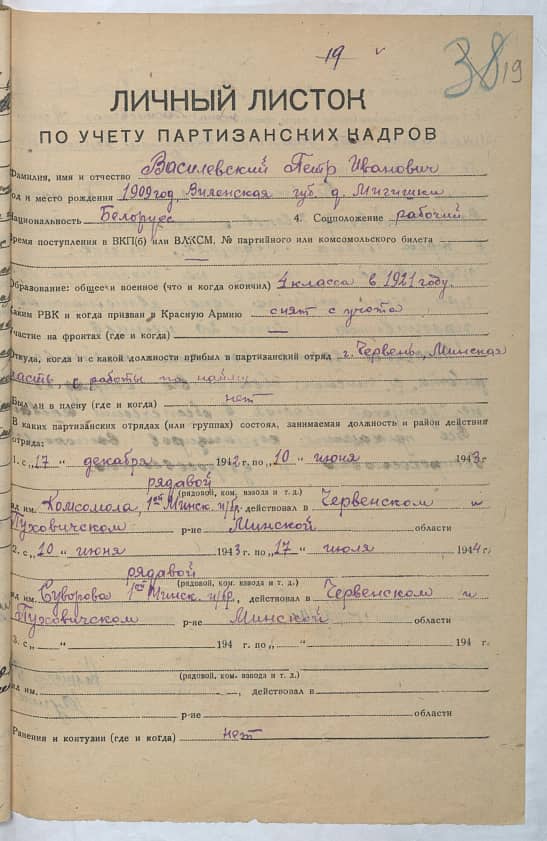 19
38 19
ЛИЧНЫЙ ЛИСТОК
ПО УЧЕТУ ПАРТИЗАНСКИХ КАДРОВ
Фамилия, имя и отчество Василевский Петр Иванович
од и место рождения 1909 год Виленская губ. д. Мигишки
Национальность Белорусс 4. Соцположение рабочий
Время поступления в ВКП(б) или ВЛКСМ, № партийного или комсомольского билета
—
Образование: общее и военное (что и когда окончил) 4 класса в 1921 году.
Каким РВК и когда призван в Красную Армию снят с учота
Участие на фронтах (где и когда) —
Откуда, когда и с какой должности прибыл в партизанский отряд г. Червень, Минская
ласть, с работы по найму
Был ли в плену (где и когда) нет
В каких партизанских отрядах (или группах) состоял, занимаемая должность и район действия
отряда:
1. с „17" декабря 1942 г. по „10" июня 1943 г.
рядавой
(рядовой, ком. взвода и т. д.)
яд им. Комсомола, 1ой Минск. п/бр. действовал в Червенском и
Пуховичском р-не Минской области
2. с „10" июня 1943 г. по „17" июля 1944 г.
рядавой
(рядовой, ком. взвода и т. д.)
яд им. Суворова 1ой Минск. п/бр, действовал в Червенском и
Пуховичском р-не Минской области
3. с „ " 194 г. по „ " 194 г.
(рядовой, ком. взвода и т. д.)
яд им. , действовал в
р-не области
Ранения и контузии (где и когда) нет